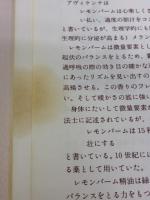 アヴィケンナは
レモンバームは心楽しく
い払い、過度の胆汁をコ
と書いているが、生理学的にも
生理的に分泌が高まる）メラン
レモンバームは微量要素と
起伏のバランスをとるために
にあったリズムを見い出すの
高揚させる。この香りのフレ
い。そして暖かさの底に強い
身体にたいして微量要素
法士に記述されているが、
レモンバームは15
壮にする
と書いている。10世紀に
る薬として用いていた。
レモンバーム精油は緑
バランスをとる力をもつ